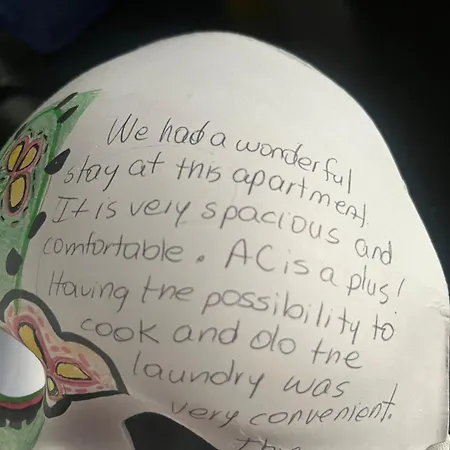 We had a wonderful
stay at this apartment.
It is very spacious and
comfortable. AC is a plus!
Having the possibility to
cook and do the
laundry was
very convenient.